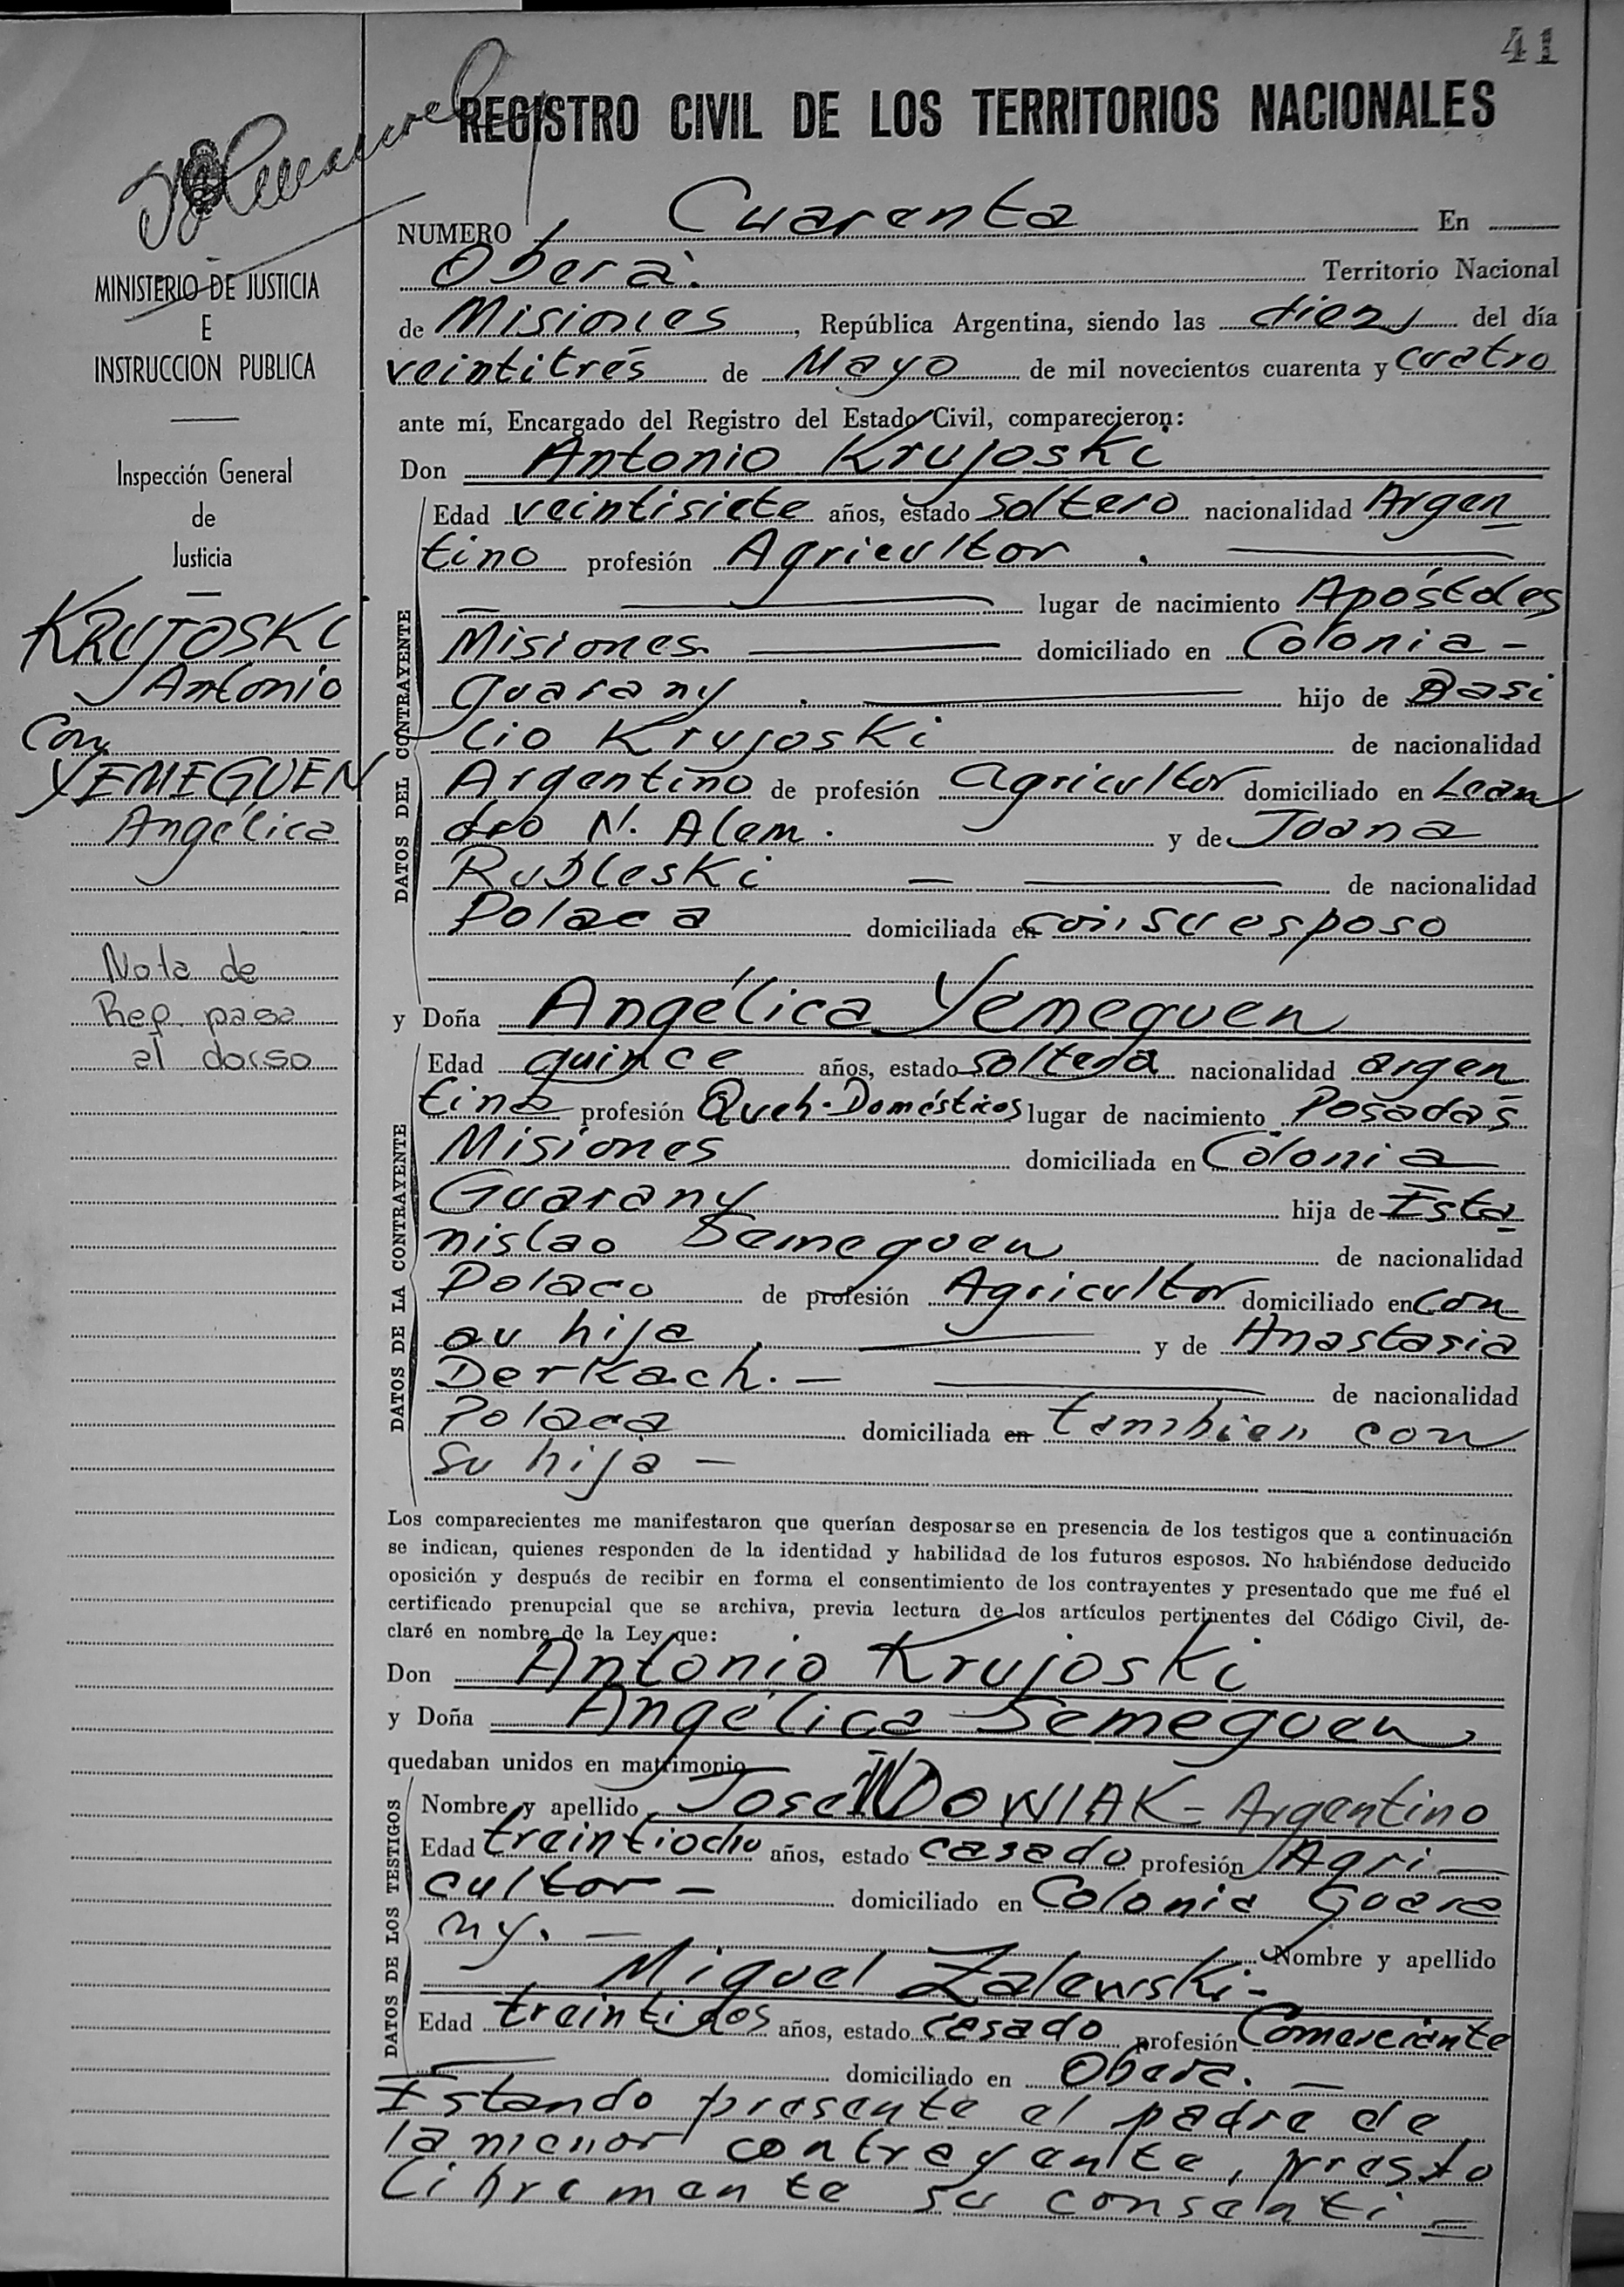 41
REGISTRO CIVIL DE LOS TERRITORIOS NACIONALES
NUMERO Cuarenta En
Oberá. Territorio Nacional
de Misiones, República Argentina, siendo las diez del día
veintitrés de Mayo de mil novecientos cuarenta y cuatro
ante mí, Encargado del Registro del Estado Civil, comparecieron:
Don Antonio Krujoski
Edad veintisiete años, estado soltero nacionalidad Argen
tino profesión Agricultor.
lugar de nacimiento Apóstoles
Misiones. domiciliado en Colonia -
Guarany. hijo de Basi
lio Krujoski de nacionalidad
Argentino de profesión agricultor domiciliado en Lean
dro N. Alem. y de Juana
Rubleski — de nacionalidad
Polaca domiciliada en con su esposo
y Doña Angélica Yemeguen
Edad quince años, estado soltera nacionalidad argen
tina profesión Queh. Domésticos lugar de nacimiento Posadas
Misiones domiciliada en Colonia
Guarany hija de Esta
nislao Semeguen de nacionalidad
Polaco de profesión Agricultor domiciliado en con
su hija. y de Anastasia
Derkach. — de nacionalidad
Polaca domiciliada en tambien con
su hija —
DATOS DEL CONTRAYENTE
DATOS DE LA CONTRAYENTE
Los comparecientes me manifestaron que querían desposarse en presencia de los testigos que a continuación
se indican, quienes responden de la identidad y habilidad de los futuros esposos. No habiéndose deducido
oposición y después de recibir en forma el consentimiento de los contrayentes y presentado que me fué el
certificado prenupcial que se archiva, previa lectura de los artículos pertinentes del Código Civil, de-
claré en nombre de la Ley que:
Don Antonio Krujoski
y Doña Angélica Semeguen
quedaban unidos en matrimonio
Nombre y apellido José DOWIAK - Argentino
Edad treintiocho años, estado casado profesión Agri-
cultor - domiciliado en Colonia Guara
ny. — Nombre y apellido
Miguel Zalewski -
Edad treintidos años, estado casado profesión Comerciante
domiciliado en Oberá. —
DATOS DE LOS TESTIGOS
Estando presente el padre de
la menor contrayente, presto
libremente su consenti -
MINISTERIO DE JUSTICIA
E
INSTRUCCION PUBLICA
Inspección General
de
Justicia
KRUJOSKI
Antonio
Con
YEMEGUEN
Angélica
Nota de
Ref. pasa
al dorso